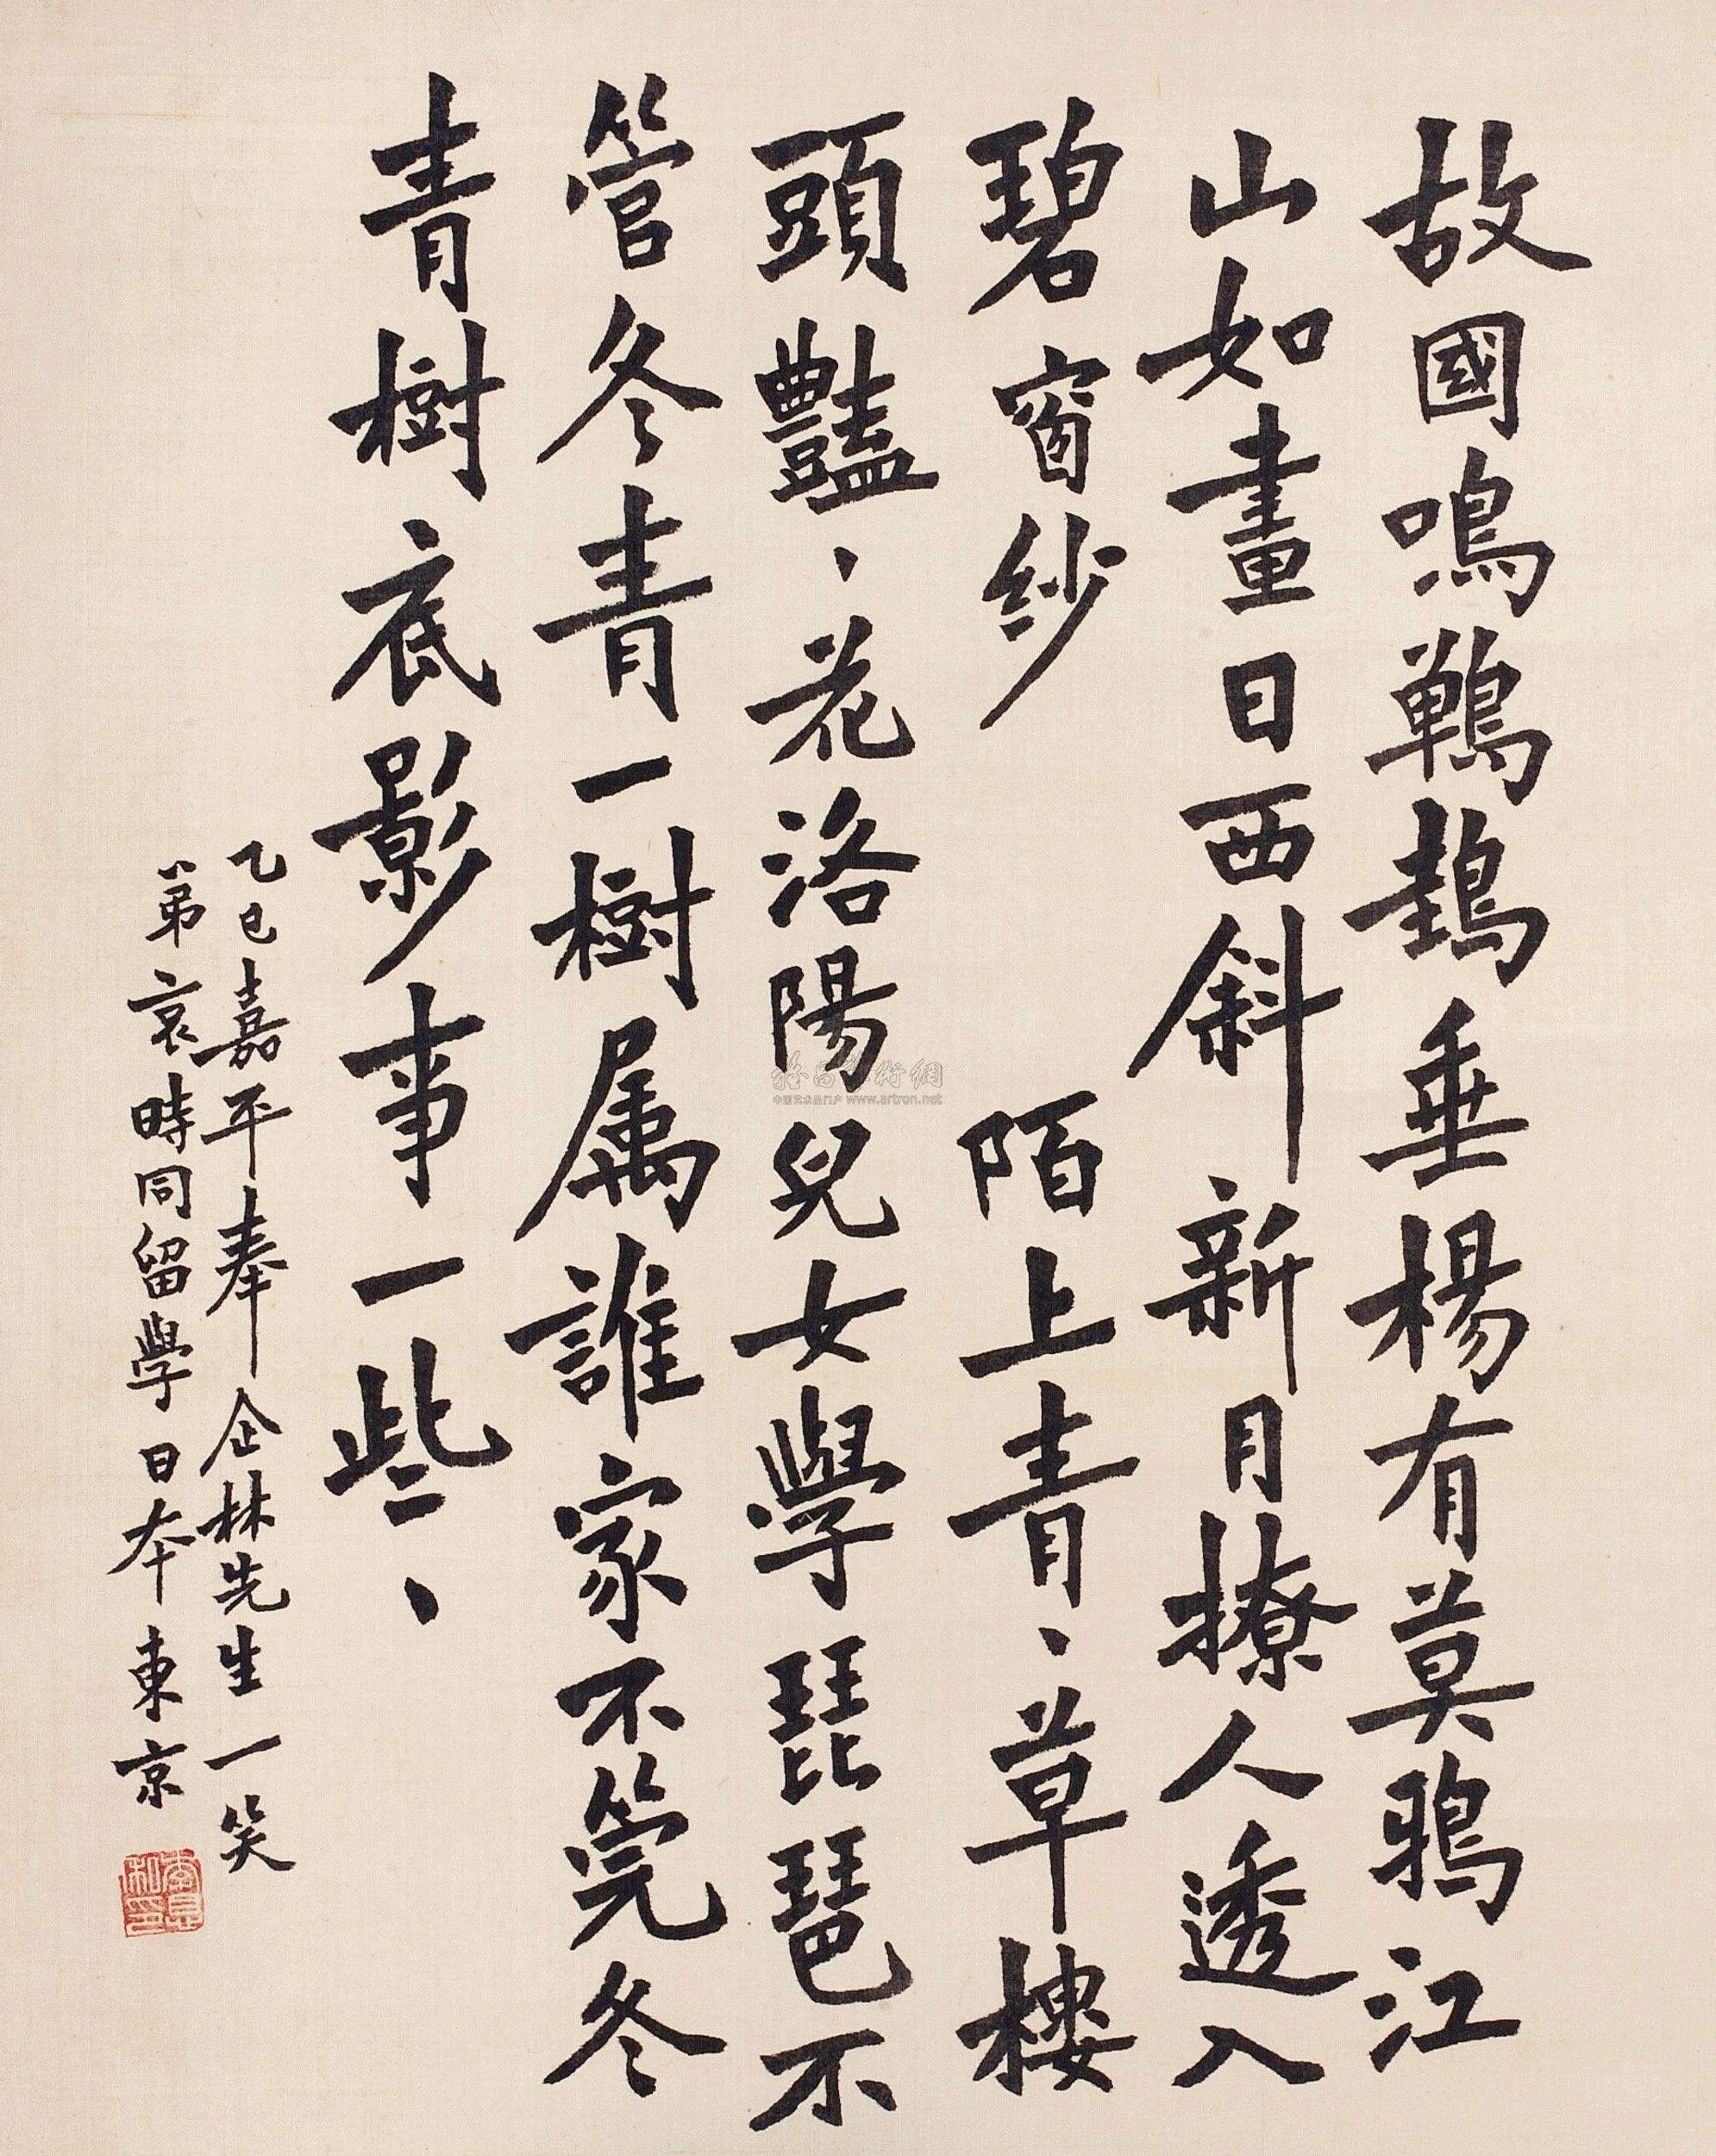 故國鳴鷤垂楊有莫鴉江
山如畫日西斜新月撩人透入
碧窗紗 陌上青、草樓
頭豔、花洛陽兒女學琵琶不
管冬青一樹属誰家不筦冬
青樹底影事一些、
乙巳嘉平奉企林先生一笑
弟哀時同留學日本東京
雅昌藝術網
中国艺术品门户 www.artron.net